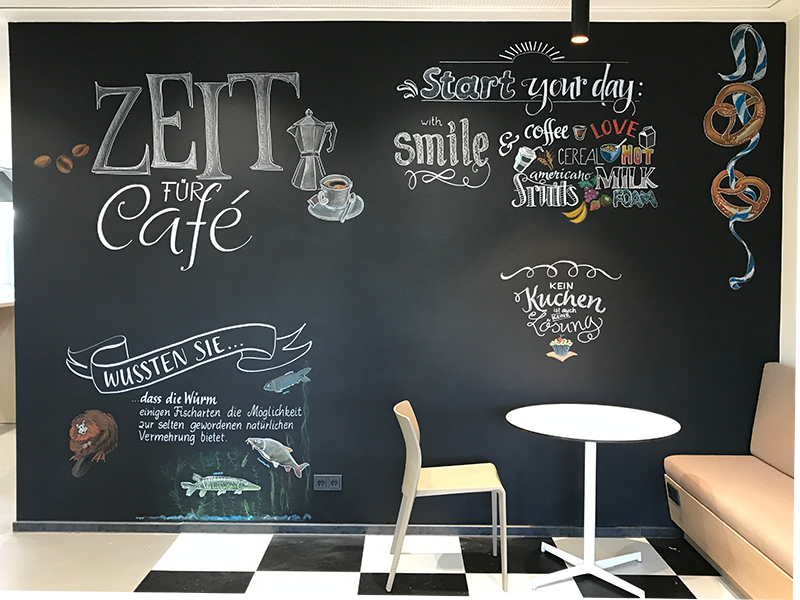 ZEIT
FÜR
Café
Start your day:
with
smile
& coffee LOVE
CEREAL HOT
americano MILK
Fruits FOAM
KEIN
Kuchen
ist auch
keine
Lösung
WUSSTEN SIE...
...dass die Würm
einigen Fischarten die Möglichkeit
zur selten gewordenen natürlichen
Vermehrung bietet.